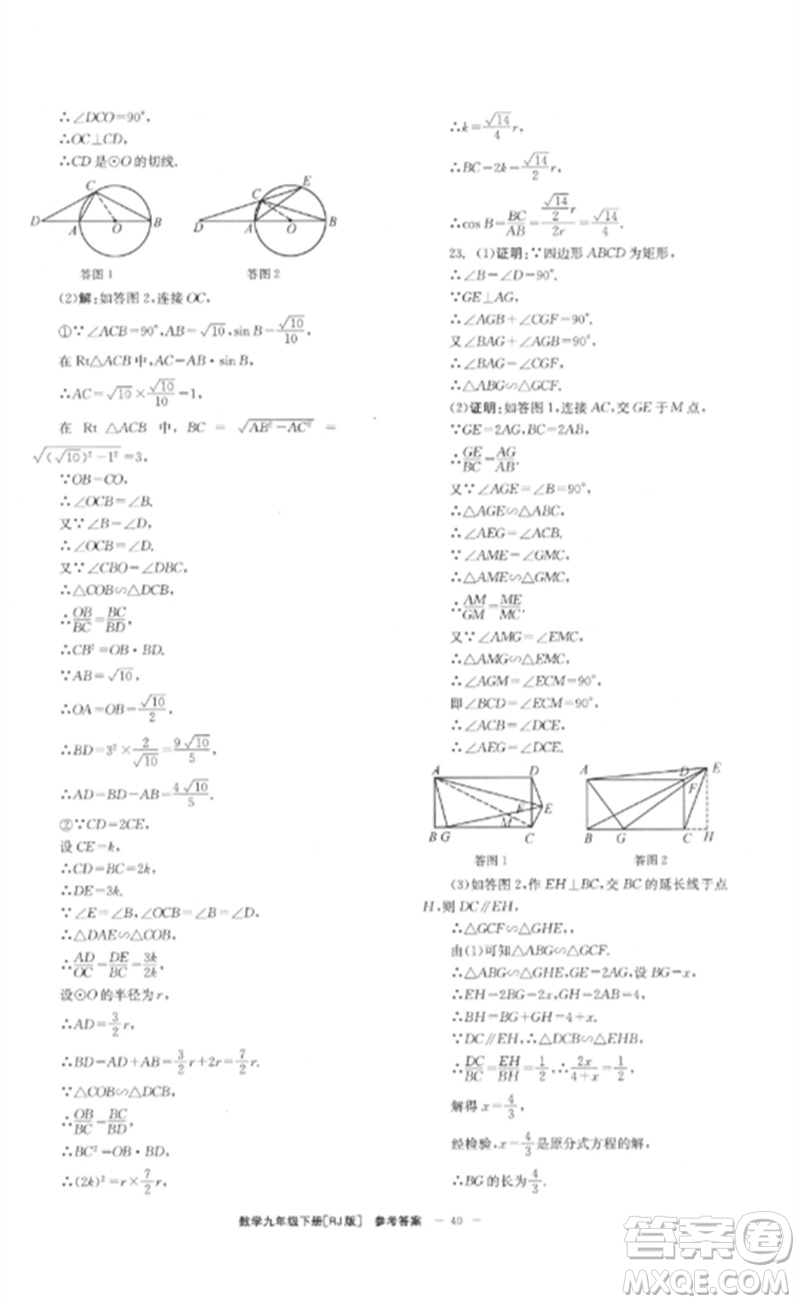 ∴∠DCO=90°,
∴OC⊥CD,
∴CD 是⊙O 的切线.
C
D
A
O
B
答图 1
C
E
D
A
O
B
答图 2
(2)解:如答图 2,连接 OC,
①∵∠ACB=90°,AB=√10,sin B=√10/10,
在 Rt△ACB 中,AC=AB·sin B,
∴AC=√10×√10/10=1,
在 Rt △ACB 中, BC = √(AB²−AC²) =
√((√10)²−1²)=3,
∵OB=CO,
∴∠OCB=∠B.
又∵∠B=∠D,
∴∠OCB=∠D.
又∵∠CBO=∠DBC,
∴△COB∽△DCB,
∴OB/BC=BC/BD,
∴CB²=OB·BD.
∵AB=√10,
∴OA=OB=√10/2,
∴BD=3²×2/√10=9√10/5,
∴AD=BD−AB=4√10/5.
②∵CD=2CE,
设 CE=k,
∴CD=BC=2k,
∴DE=3k.
∵∠E=∠B,∠OCB=∠B=∠D,
∴△DAE∽△COB,
∴AD/OC=DE/BC=3k/2k.
设⊙O 的半径为 r,
∴AD=3/2 r,
∴BD=AD+AB=3/2 r+2r=7/2 r.
∵△COB∽△DCB,
∴OB/BC=BC/BD,
∴BC²=OB·BD,
∴(2k)²=r×7/2 r,
∴k=√14/4 r,
∴BC=2k=√14/2 r,
∴cos B=BC/AB=(√14/2 r)/2r=√14/4.
23. (1)证明:∵四边形 ABCD 为矩形,
∴∠B=∠D=90°.
∵GE⊥AG,
∴∠AGB+∠CGF=90°.
又∠BAG+∠AGB=90°,
∴∠BAG=∠CGF,
∴△ABG∽△GCF.
(2)证明:如答图 1,连接 AC,交 GE 于 M 点,
∵GE=2AG,BC=2AB,
∴GE/BC=AG/AB.
又∵∠AGE=∠B=90°,
∴△AGE∽△ABC,
∴∠AEG=∠ACB.
∵∠AME=∠GMC,
∴△AME∽△GMC,
∴AM/GM=ME/MC.
又∵∠AMG=∠EMC,
∴△AMG∽△EMC,
∴∠AGM=∠ECM=90°,
即∠BCD=∠ECM=90°,
∴∠ACB=∠DCE,
∴∠AEG=∠DCE.
A
D
F
E
M
B
G
C
答图 1
A
D
E
F
B
G
C
H
答图 2
(3)如答图 2,作 EH⊥BC,交 BC 的延长线于点
H,则 DC∥EH,
∴△GCF∽△GHE,,
由(1)可知△ABG∽△GCF.
∴△ABG∽△GHE,GE=2AG,设 BG=x,
∴EH=2BG=2x,GH=2AB=4,
∴BH=BG+GH=4+x.
∵DC∥EH,∴△DCB∽△EHB,
∴DC/BC=EH/BH=1/2,∴2x/(4+x)=1/2,
解得 x=4/3,
经检验,x=4/3是原分式方程的解,
∴BG 的长为4/3.
数学九年级下册[RJ版] 参考答案 — 40 —
答案圈
MXQE.COM